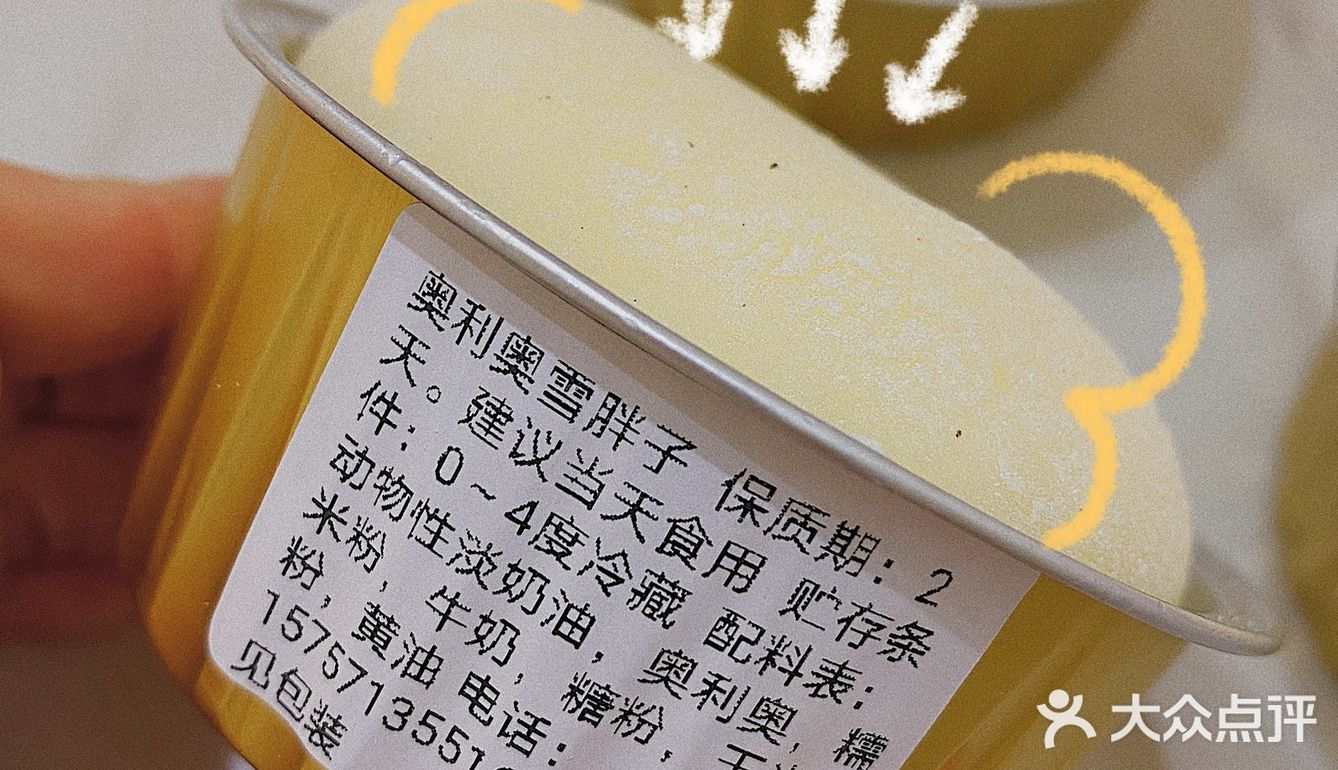 奥利奥雪胖子 保质期：2
天。建议当天食用 贮存条
件：0～4度冷藏 配料表：
动物性淡奶油，奥利奥，糯
米粉，牛奶，糖粉，
粉，黄油 电话：
1575713551
见包装
大众点评